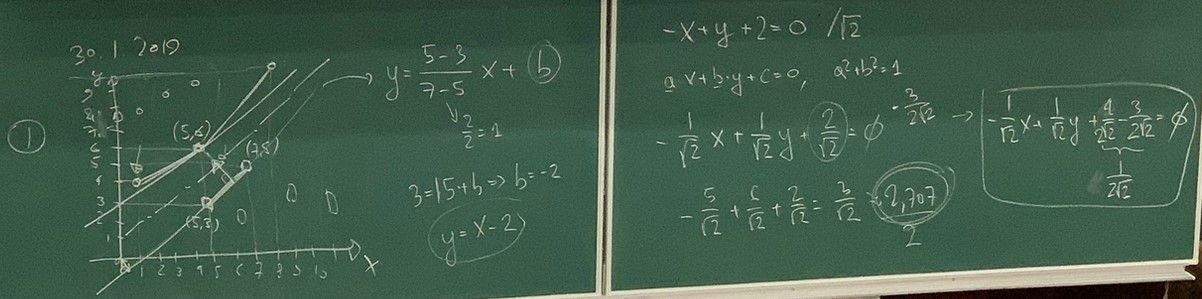 30. 1. 2019
①
y
9
8
7
6
5
4
3
1
(5,6)
(7,5)
(5,3)
1 2 3 4 5 6 7 8 9 10
X
y = (5-3)/(7-5) x + b
2/2 = 1
3 = 1·5 + b => b = -2
y = x - 2
-x + y + 2 = 0 /√2
a·x + b·y + c = 0, a² + b² = 1
-1/√2 x + 1/√2 y + 2/√2 = ∅
-3/2√2 → -1/√2 x + 1/√2 y + 4/2√2 - 3/2√2 = ∅
1/2√2
-5/√2 + 6/√2 + 2/√2 = 3/√2
2,707
2